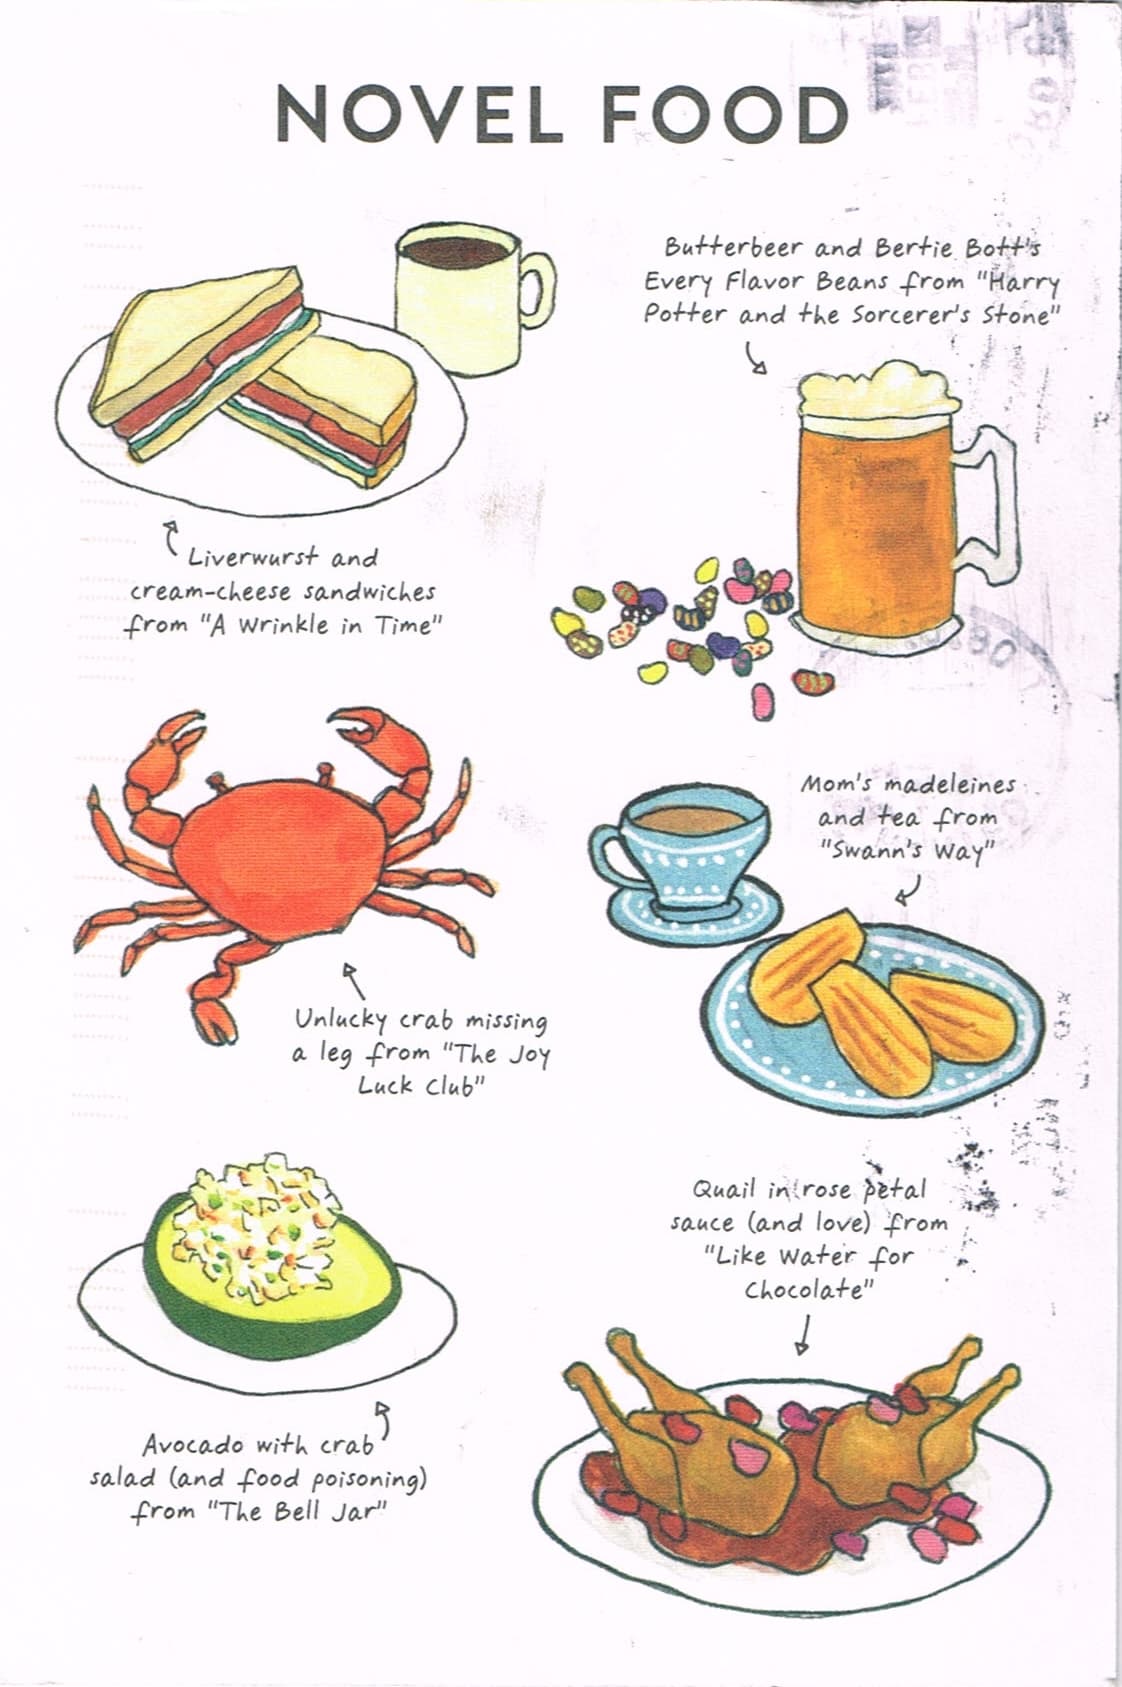 NOVEL FOOD
Butterbeer and Bertie Bott's
Every Flavor Beans from "Harry
Potter and the Sorcerer's Stone"
Liverwurst and
cream-cheese sandwiches
from "A Wrinkle in Time"
Mom's madeleines
and tea from
"Swann's Way"
Unlucky crab missing
a leg from "The Joy
Luck Club"
Quail in rose petal
sauce (and love) from
"Like Water for
Chocolate"
Avocado with crab
salad (and food poisoning)
from "The Bell Jar"